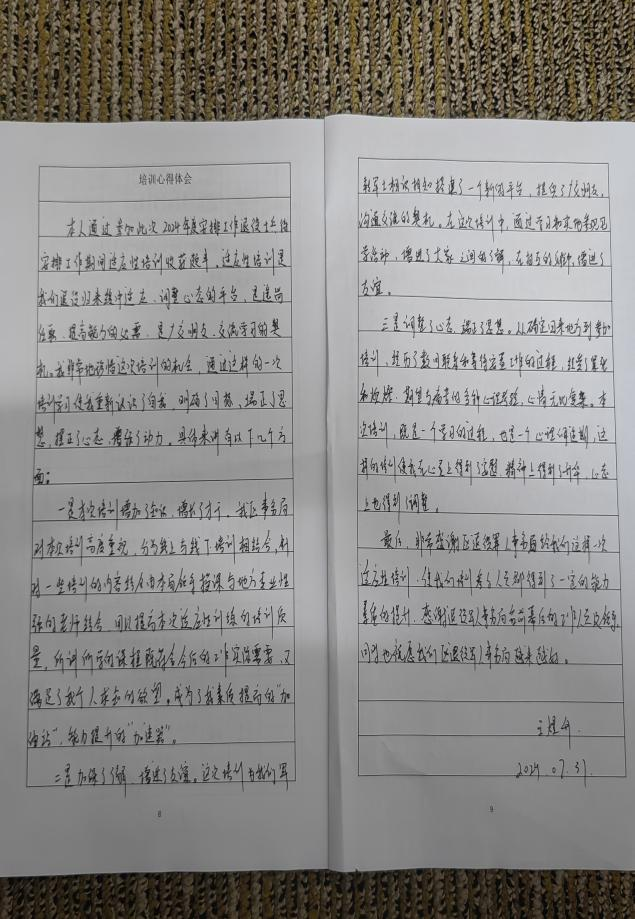 培训心得体会
本人通过参加此次2024年度安排工作退役士兵待
安排工作期间适应性培训收获颇丰。适应性培训是
我们退役归来续中
调整心态的平台，是适岗
任职、提高能力的必需，是广交朋友、交流学习的契
机。我非常地珍惜这次培训的机会，通过这样的一次
培训学习使我重新认识了自我，明确了目标，端正了思
想，摆正了心态，增添了动力。具体来讲有以下几个方
面：
一是本次培训增加了知识，增长了才干，我区事务局
对本次培训高度重视，分为线上与线下培训相结合，针
对一些培训的内容
由本局领导授课与地方专业性
强的老师结合，用以提高本次适应性训练的培训质
量，所讲所学的课程既符合今后的工作实际需要，又
满足了我个人求知的欲望。成为了我素质提高的“加
油站”，能力提升的“加速器”。
二是加深了了解，增进了友谊。这次培训为我们军
相识相知搭建了一个新的平台，提供了广交朋友，
沟通交流的契机。在这次培训中，通过学习和实际参观及
劳动，增进了大家之间的了解，在相互的
中增进了
友谊。
三是调整了心态，端正了思想。从确定回来地方到参加
培训，经历了数月
和等待安置工作的过程，经
和
、期望与痛苦的多种心理考验，心情无比复杂。本
次培训，既是一个学习的过程，也是一个心理
，这
样的培训使我在心灵上得到了
，精神上得到了升华，心态
上也得到了调整。
最后，非常感谢区退役军人事务局给我们这样一次
适应性培训，使我们培训
人员都得到了一定的能力
素质的提升，感谢退役军人事务局台前幕后的工作人员及领导，
同时也祝愿我们区退役军人事务局越来越好。
2024.07.31.
8
9